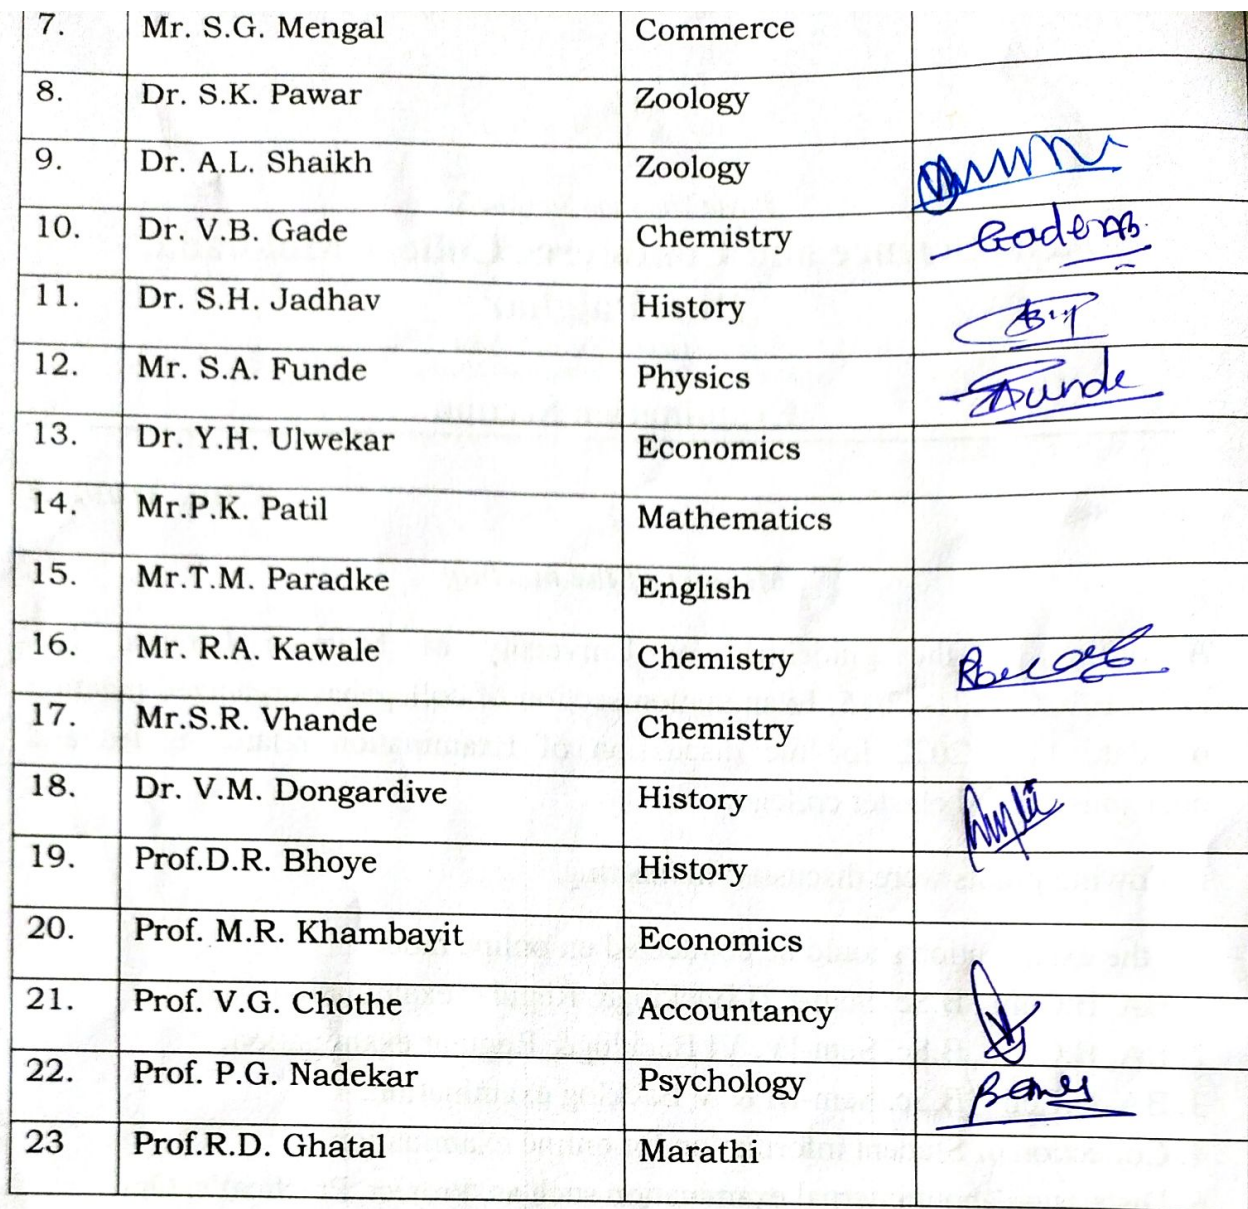 7. Mr. S.G. Mengal Commerce
8. Dr. S.K. Pawar Zoology
9. Dr. A.L. Shaikh Zoology
10. Dr. V.B. Gade Chemistry Gade
11. Dr. S.H. Jadhav History
12. Mr. S.A. Funde Physics Funde
13. Dr. Y.H. Ulwekar Economics
14. Mr.P.K. Patil Mathematics
15. Mr.T.M. Paradke English
16. Mr. R.A. Kawale Chemistry
17. Mr.S.R. Vhande Chemistry
18. Dr. V.M. Dongardive History
19. Prof.D.R. Bhoye History
20. Prof. M.R. Khambayit Economics
21. Prof. V.G. Chothe Accountancy
22. Prof. P.G. Nadekar Psychology
23 Prof.R.D. Ghatal Marathi